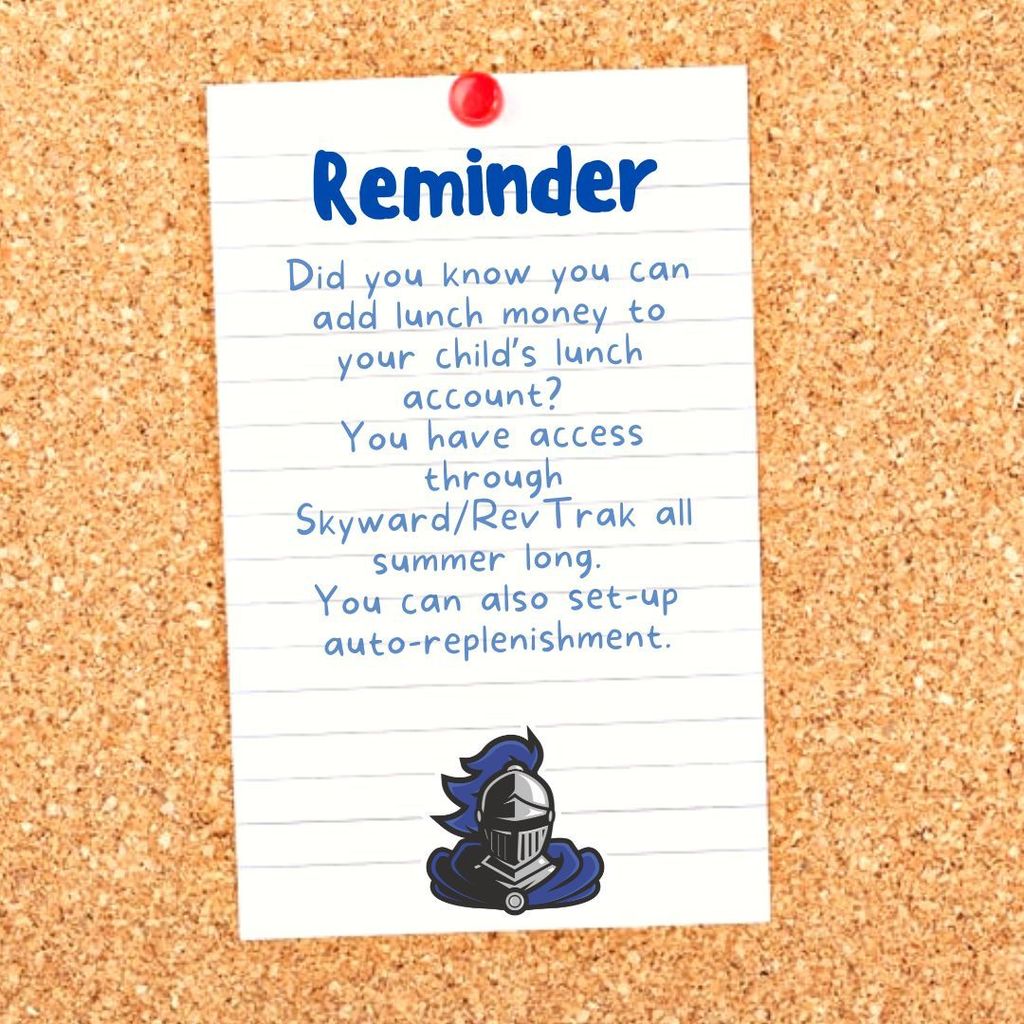 Reminder
Did you know you can
add lunch money to
your child's lunch
account?
You have access
through
Skyward/RevTrak all
summer long.
You can also set-up
auto-replenishment.